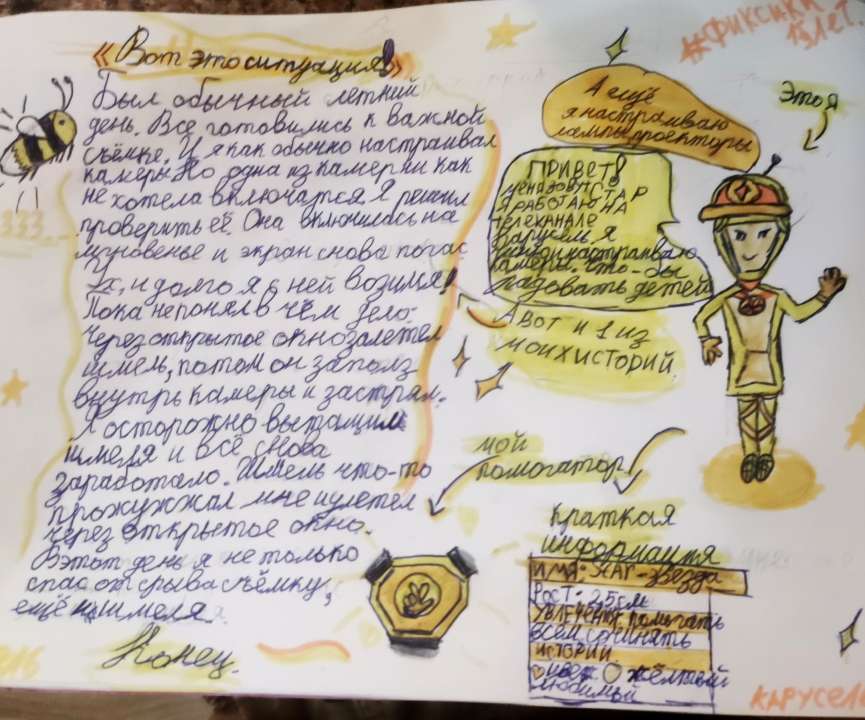 «Вот это ситуация!»
Был обычный летний
день. Все готовились к важной
съёмке. И я как обычно настраивал
камеры. Но одна из камер ни как
не хотела включатся. Я решил
проверить её. Она включилась на
мгновенье и экран снова погас
Ух, и долго я с ней возился!
Пока не понял в чём дело.
Через открытое окно залетел
шмель, потом он заполз
внутрь камеры и застрял.
Я осторожно вытащил
шмеля и всё снова
заработало. Шмель что-то
прожужжал мне и улетел
через открытое окно.
В этот день я не только
спас от срыва съёмку,
ещё и шмеля.
Конец.
#Фиксики
13 лет.
Это я
А ещё
я настраиваю
лампы проектуры
ПРИВЕТ!
МЕНЯ ЗОВУТ СТАР
Я РАБОТАЮ НА
ТЕЛЕКАНАЛЕ
Карусель я
настраиваю
камеры, что-бы
радовать детей
А ВОТ И 1 ИЗ
МОИХ ИСТОРИЙ.
мой
помогатор!
Краткая
информация
ИМЯ: Стар-звезда
Рост: 2,5 см
Увлечения: помогать
всем сочинять
истории
цвет жёлтый
любимый
КАРУСЕЛЬ